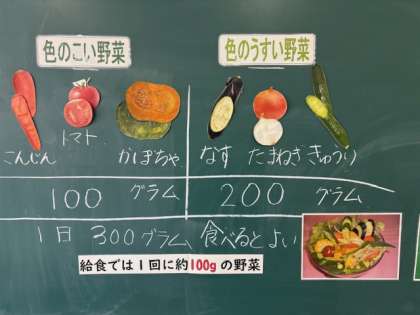 色のこい野菜 色のうすい野菜
にんじん トマト かぼちゃ なす たまねぎ きゅうり
100 グラム 200 グラム
1日 300グラム 食べるとよい
給食では1回に約100gの野菜